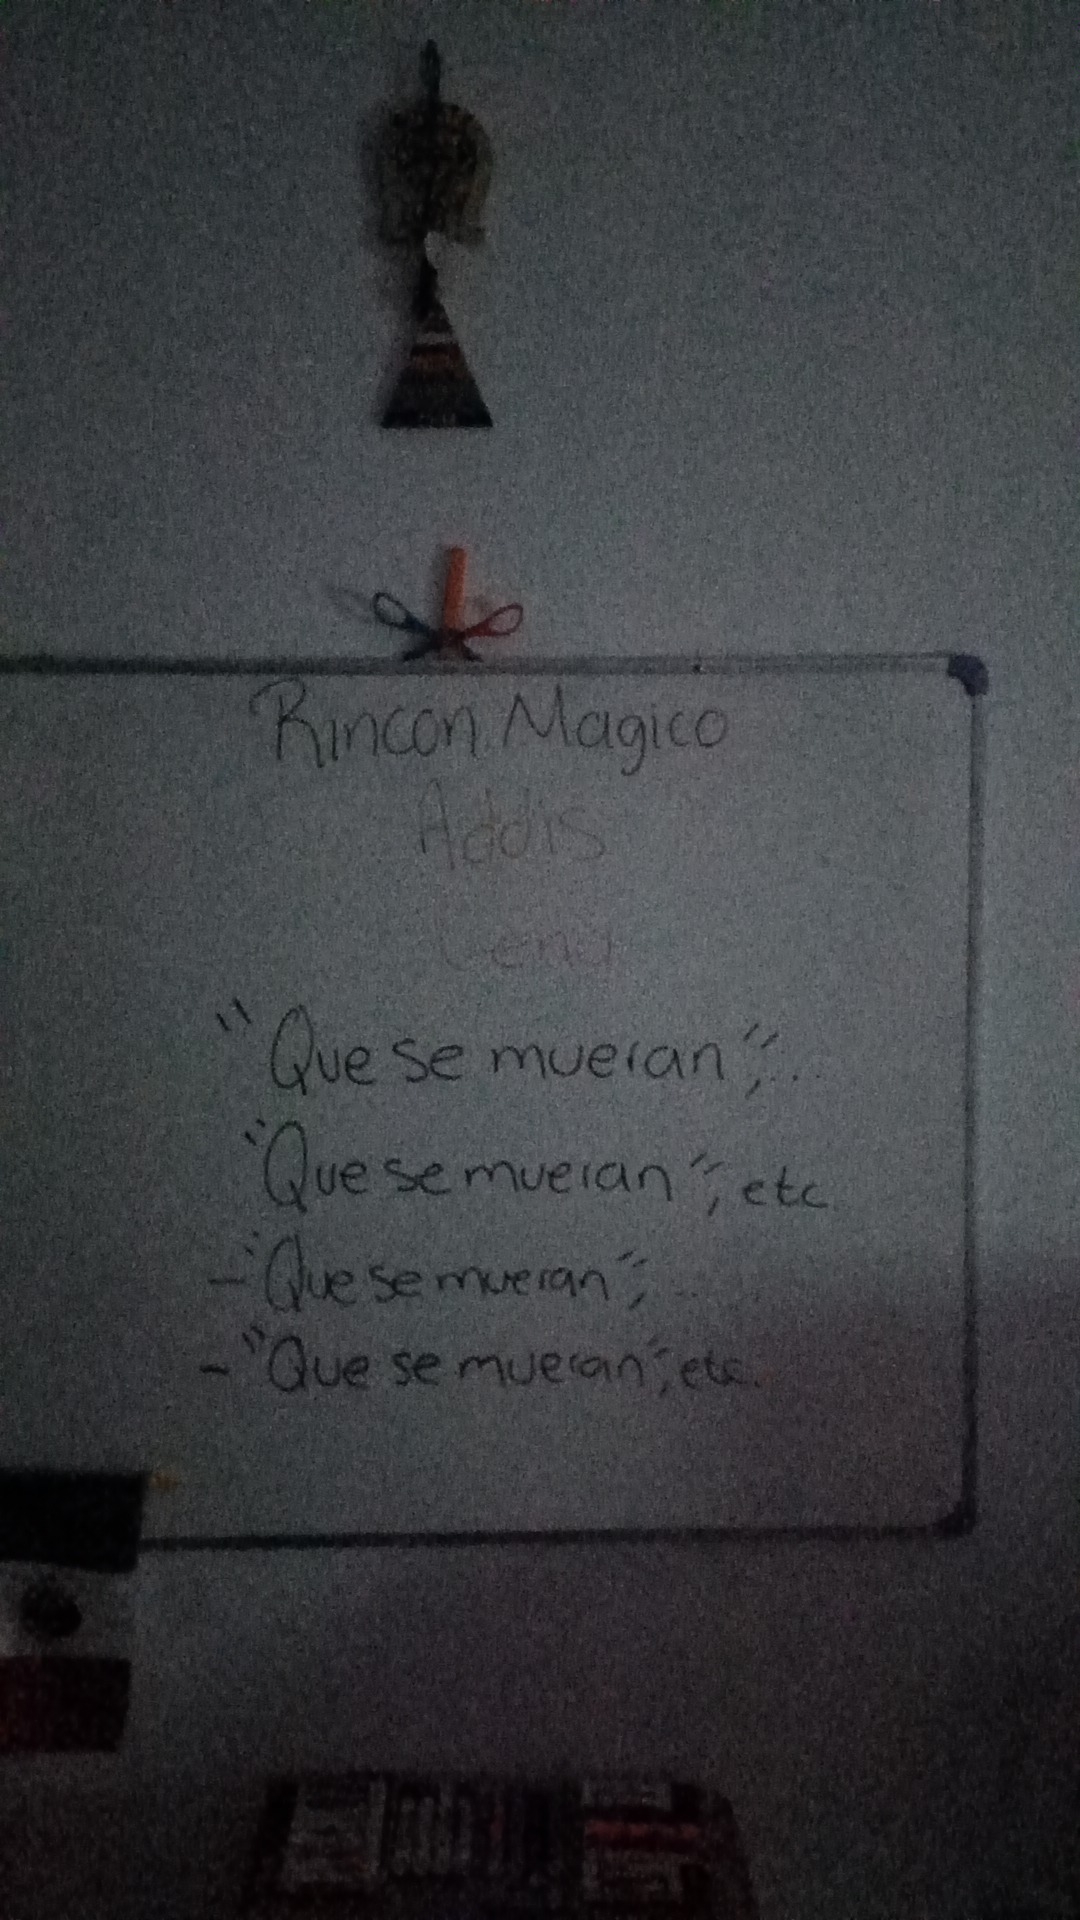 Rincon Magico
Addis
Lena
"Que se mueran",...
"Que se mueran", etc
- "Que se mueran", ...
- "Que se mueran", etc.